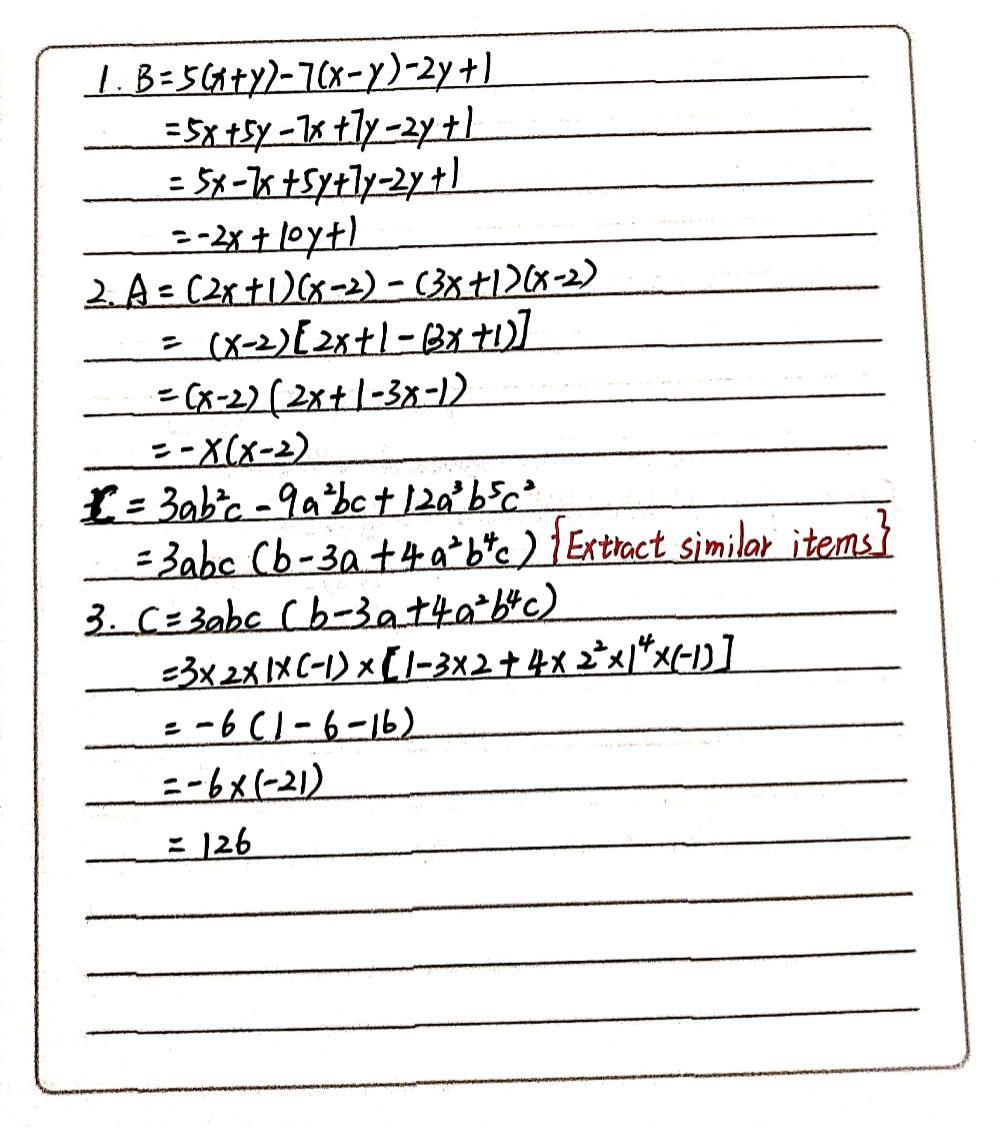 1. B=5(x+y)-7(x-y)-2y+1
=5x+5y-7x+7y-2y+1
=5x-7x+5y+7y-2y+1
=-2x+10y+1
2. A=(2x+1)(x-2)-(3x+1)(x-2)
=(x-2)[2x+1-(3x+1)]
=(x-2)(2x+1-3x-1)
=-x(x-2)
C=3ab²c-9a²bc+12a³b⁵c²
=3abc(b-3a+4a²b⁴c) {Extract similar items}
3. C=3abc(b-3a+4a²b⁴c)
=3×2×1×(-1)×[1-3×2+4×2²×1⁴×(-1)]
=-6(1-6-16)
=-6×(-21)
=126